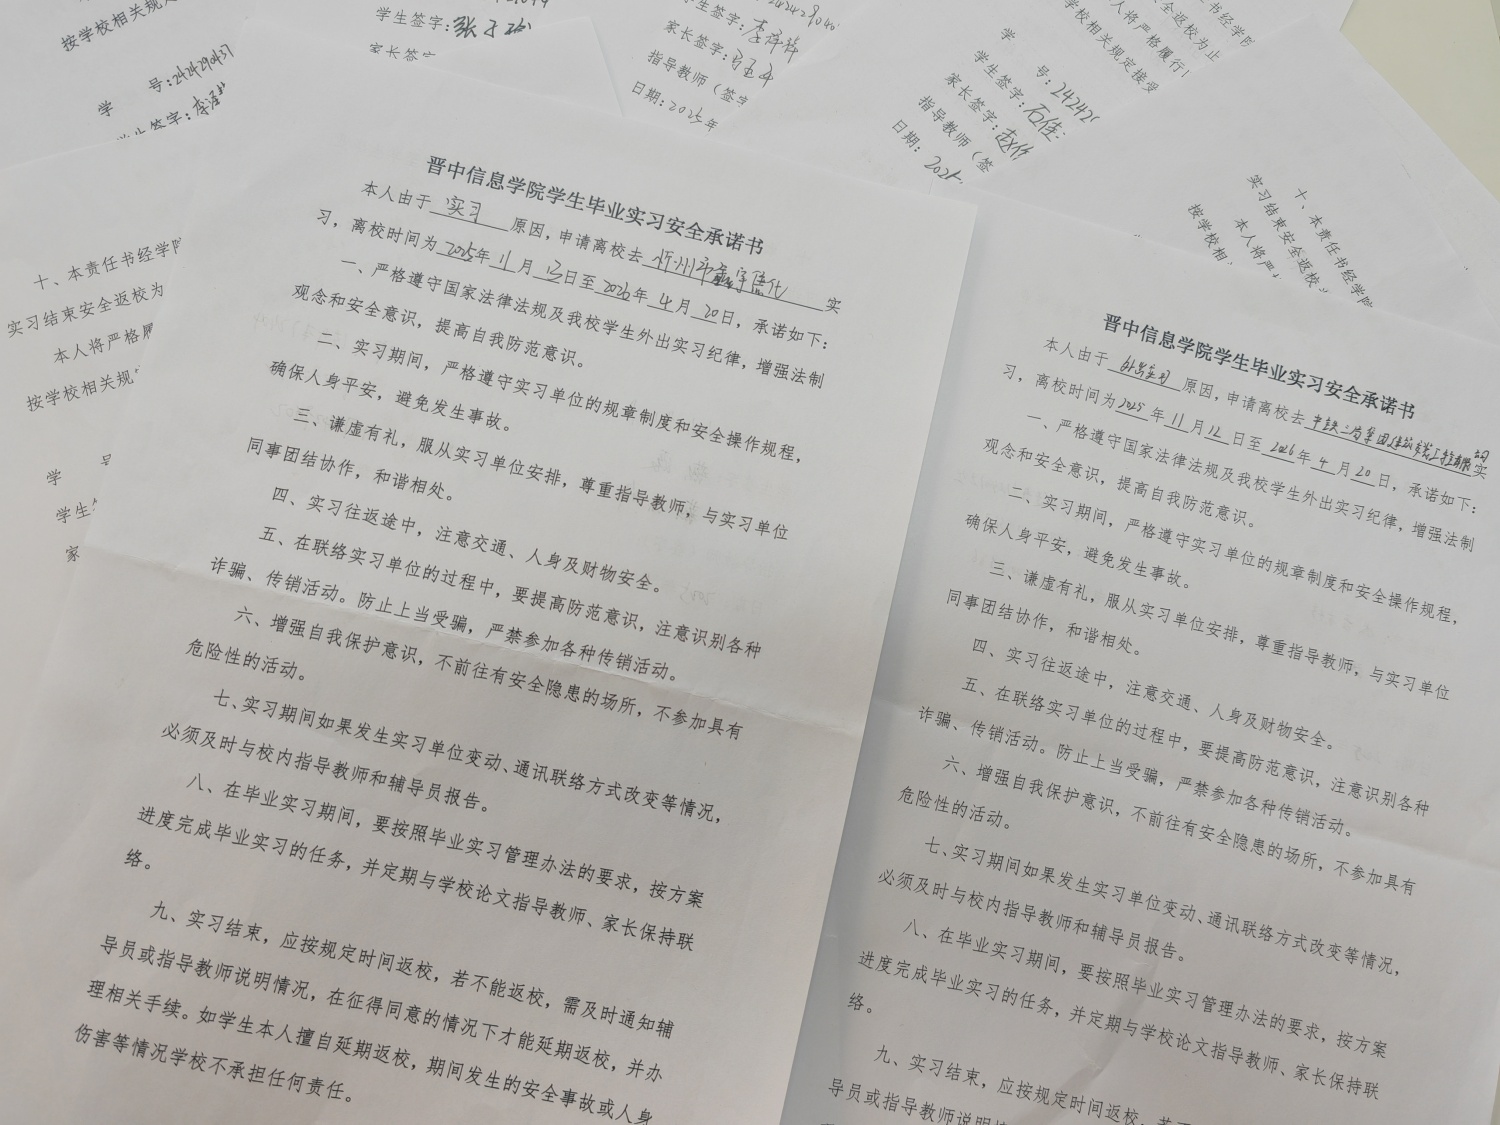 按学校相关规定
学 号:2424290437
学生签字:
学生签字:张子
家长签字
学生签字:李
家长签字:
指导教师(签字
日期:2025年
学 号:24242
学生签字:石佳
家长签字:赵
指导教师(签
日期:2025.
本人将严格履行
按学校相关规定接受
十、本责任书经学院
实习结束安全返校为
本人将严
按学校相
十、本责任书经学院
实习结束安全返校为
本人将严格履
按学校相关规定
学 号
学生签
家
晋中信息学院学生毕业实习安全承诺书
本人由于 实习 原因,申请离校去 忻州市 实
习,离校时间为2025年11月13日至2026年4月20日,承诺如下:
一、严格遵守国家法律法规及我校学生外出实习纪律,增强法制
观念和安全意识,提高自我防范意识。
二、实习期间,严格遵守实习单位的规章制度和安全操作规程,
确保人身平安,避免发生事故。
三、谦虚有礼,服从实习单位安排,尊重指导教师,与实习单位
同事团结协作,和谐相处。
四、实习往返途中,注意交通、人身及财物安全。
五、在联络实习单位的过程中,要提高防范意识,注意识别各种
诈骗、传销活动。防止上当受骗,严禁参加各种传销活动。
六、增强自我保护意识,不前往有安全隐患的场所,不参加具有
危险性的活动。
七、实习期间如果发生实习单位变动、通讯联络方式改变等情况,
必须及时与校内指导教师和辅导员报告。
八、在毕业实习期间,要按照毕业实习管理办法的要求,按方案
进度完成毕业实习的任务,并定期与学校论文指导教师、家长保持联
络。
九、实习结束,应按规定时间返校,若不能返校,需及时通知辅
导员或指导教师说明情况,在征得同意的情况下才能延期返校,并办
理相关手续。如学生本人擅自延期返校,期间发生的安全事故或人身
伤害等情况学校不承担任何责任。
晋中信息学院学生毕业实习安全承诺书
本人由于 外出实习 原因,申请离校去 中铁三局集团建筑安装工程有限公司 实
习,离校时间为2025年11月12日至2026年4月20日,承诺如下:
一、严格遵守国家法律法规及我校学生外出实习纪律,增强法制
观念和安全意识,提高自我防范意识。
二、实习期间,严格遵守实习单位的规章制度和安全操作规程,
确保人身平安,避免发生事故。
三、谦虚有礼,服从实习单位安排,尊重指导教师,与实习单位
同事团结协作,和谐相处。
四、实习往返途中,注意交通、人身及财物安全。
五、在联络实习单位的过程中,要提高防范意识,注意识别各种
诈骗、传销活动。防止上当受骗,严禁参加各种传销活动。
六、增强自我保护意识,不前往有安全隐患的场所,不参加具有
危险性的活动。
七、实习期间如果发生实习单位变动、通讯联络方式改变等情况,
必须及时与校内指导教师和辅导员报告。
八、在毕业实习期间,要按照毕业实习管理办法的要求,按方案
进度完成毕业实习的任务,并定期与学校论文指导教师、家长保持联
络。
九、实习结束,应按规定时间返校,若不
导员或指导教师说明情